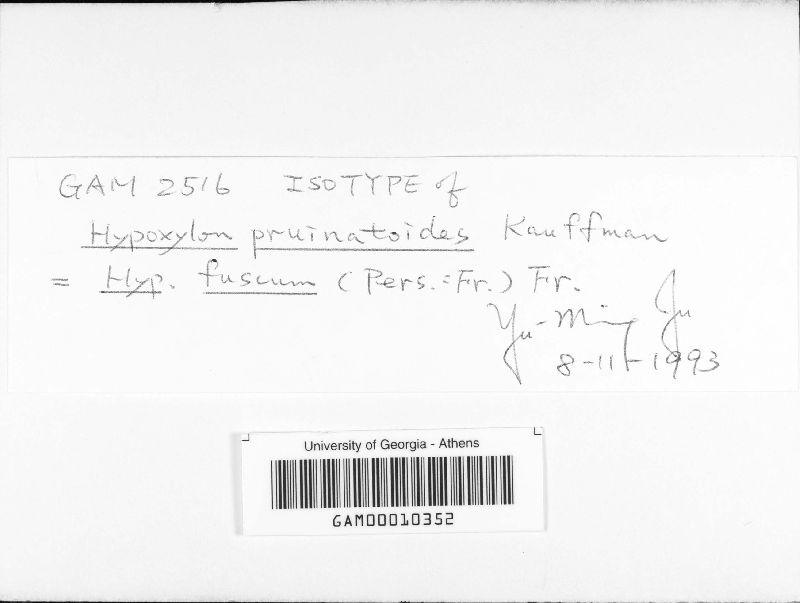 GAM 2516 ISOTYPE of
Hypoxylon pruinatoides Kauffman
= Hyp. fuscum (Pers.:Fr.) Fr.
Yu-Ming Ju
8-11-1993
University of Georgia - Athens
GAM00010352